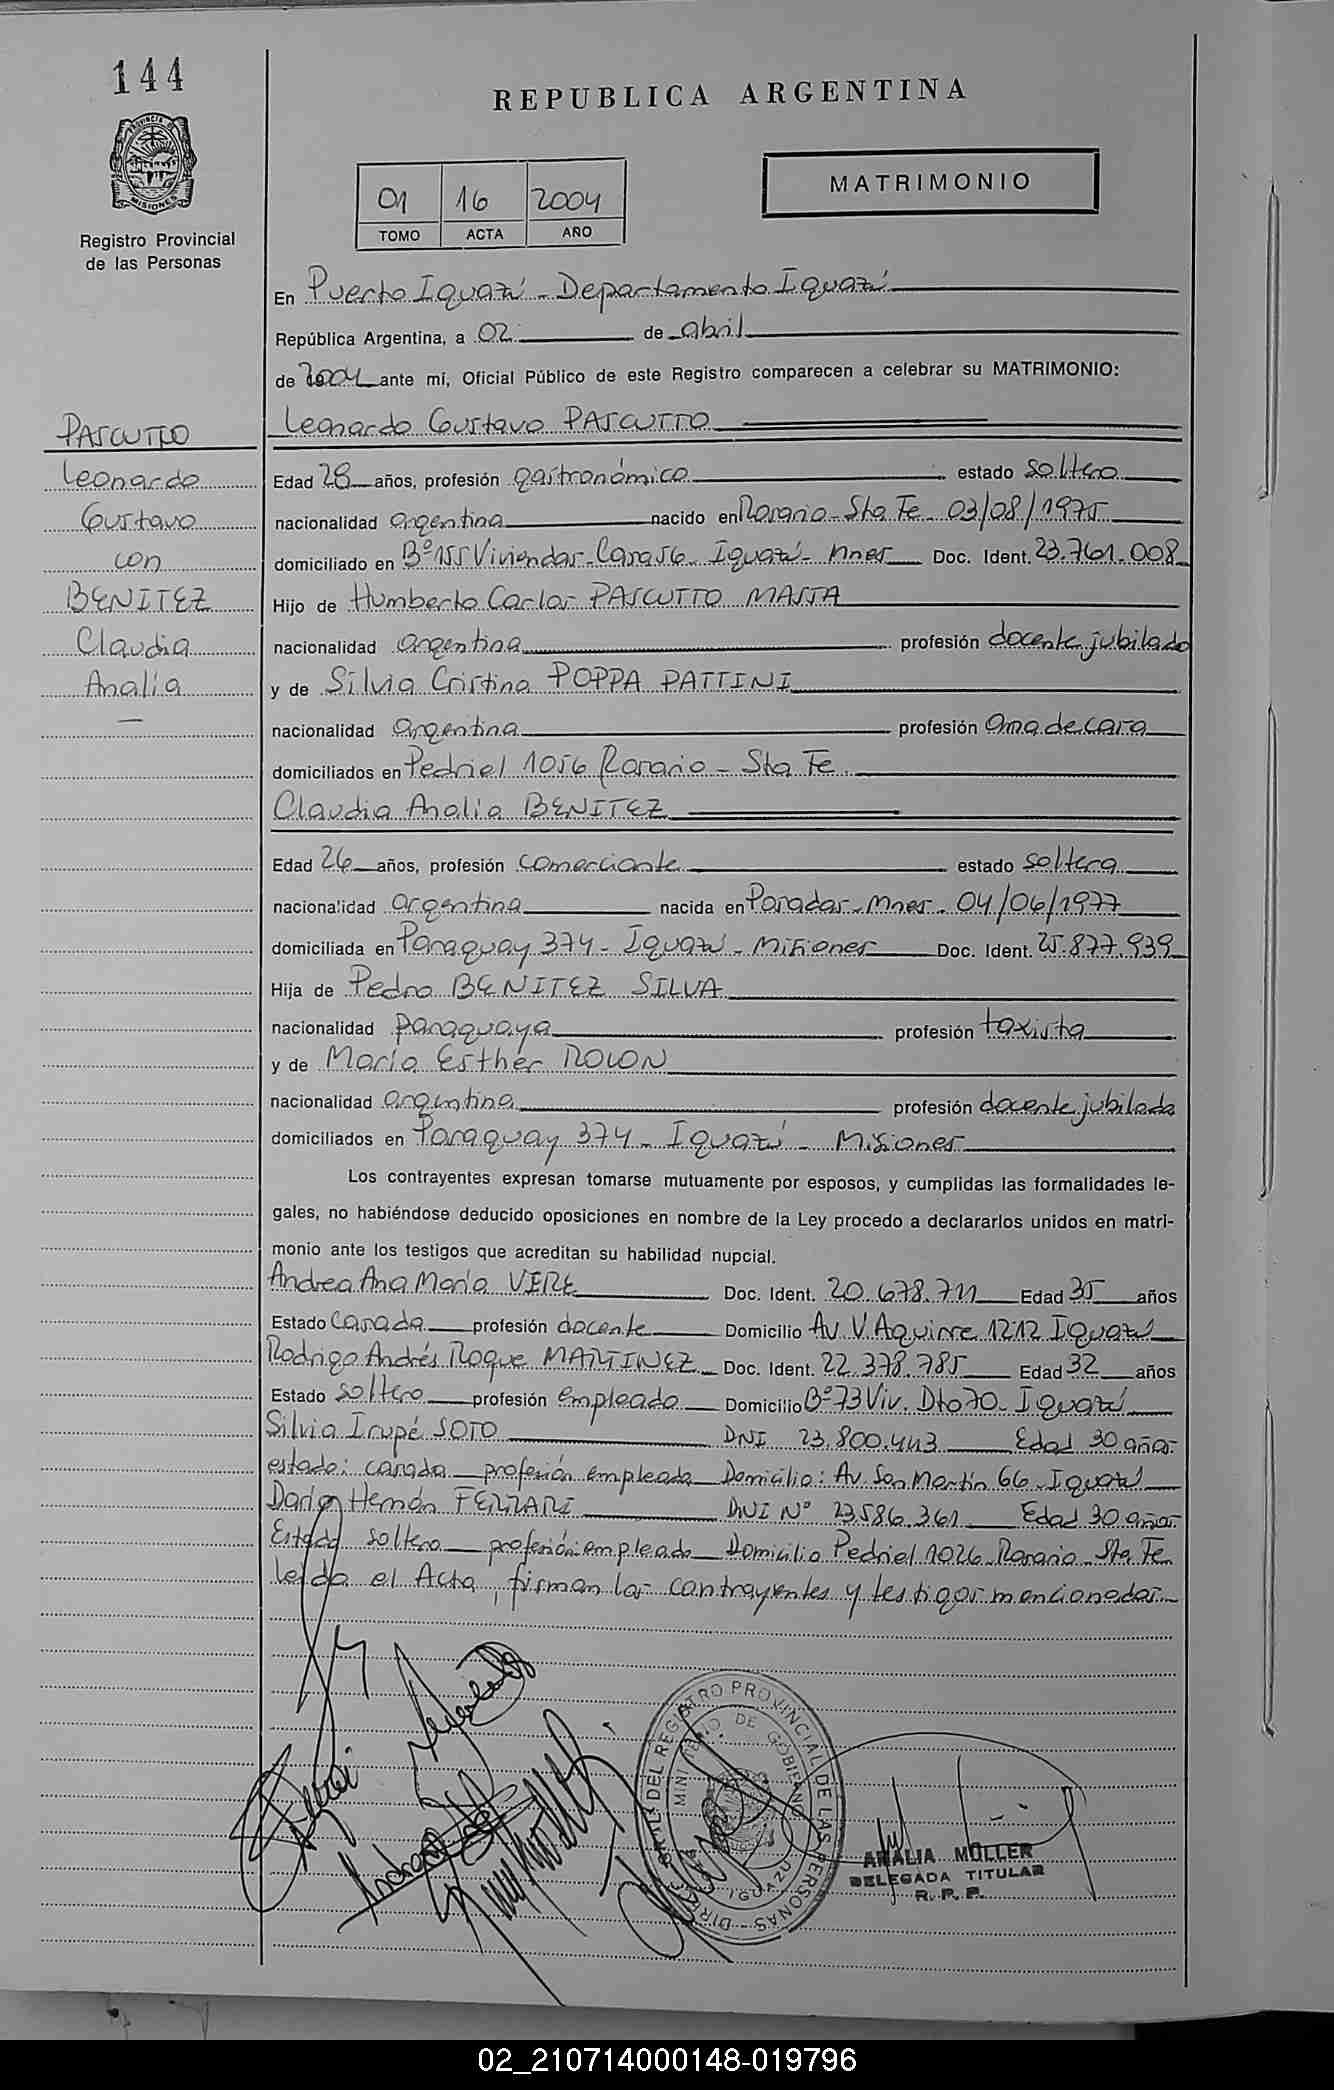 144
REPUBLICA ARGENTINA
PROVINCIA DE
MISIONES
Registro Provincial
de las Personas
01 16 2004
TOMO ACTA AÑO
MATRIMONIO
En Puerto Iguazú - Departamento Iguazú
República Argentina, a 02 de abril
de 2004 ante mí, Oficial Público de este Registro comparecen a celebrar su MATRIMONIO:
Leonardo Gustavo PASCUTTO
PASCUTTO
Leonardo
Gustavo
con
BENITEZ
Claudia
Analía
Edad 28 años, profesión gastronómico estado soltero
nacionalidad argentina nacido en Rosario - Sta Fe - 03/08/1975
domiciliado en Bº 155 Viviendas - Casa 56 - Iguazú - Mnes Doc. Ident. 23.761.008
Hijo de Humberto Carlos PASCUTTO MASTA
nacionalidad argentina profesión docente jubilado
y de Silvia Cristina POPPA PATTINI
nacionalidad argentina profesión ama de casa
domiciliados en Pedriel 1056 Rosario - Sta Fe
Claudia Analia BENITEZ
Edad 26 años, profesión comerciante estado soltera
nacionalidad argentina nacida en Posadas - Mnes - 04/06/1977
domiciliada en Paraguay 374 - Iguazú - Misiones Doc. Ident. 25.877.939
Hija de Pedro BENITEZ SILVA
nacionalidad paraguaya profesión taxista
y de María Esther ROLON
nacionalidad argentina profesión docente jubilada
domiciliados en Paraguay 374 - Iguazú - Misiones
Los contrayentes expresan tomarse mutuamente por esposos, y cumplidas las formalidades le-
gales, no habiéndose deducido oposiciones en nombre de la Ley procedo a declararlos unidos en matri-
monio ante los testigos que acreditan su habilidad nupcial.
Andrea Ana María VERE Doc. Ident. 20.678.711 Edad 35 años
Estado casada profesión docente Domicilio Av V Aquirre 1212 Iguazú
Rodrigo Andrés Roque MARTINEZ Doc. Ident. 22.378.785 Edad 32 años
Estado soltero profesión empleado Domicilio Bº 73 Viv. Dto 70 - Iguazú
Silvia Irupé SOTO DNI 23.800.443 Edad 30 años
estado: casada profesión empleada Domicilio: Av. San Martín 66 - Iguazú
Darío Hernán FERRARI DNI Nº 23.586.361 Edad 30 años
Estado soltero profesión: empleado Domicilio Pedriel 1026 - Rosario - Sta Fe
Leída el Acta, firman los contrayentes y testigos mencionados
DEL REGISTRO PROVINCIAL DE LAS PERSONAS
MINISTERIO DE GOBIERNO
IGUAZU
ARALIA MÜLLER
DELEGADA TITULAR
R. P. P.
02_210714000148-019796